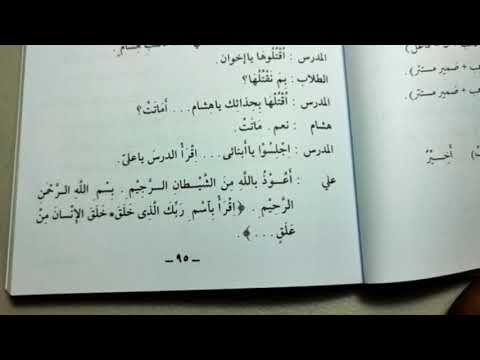 المدرس : اُقْتُلُوهَا ياإخوان.
الطلاب : بِمَ نَقْتُلُهَا؟
المدرس : اُقْتُلْهَا بِحِذائِك ياهِشام... أَمَاتَتْ؟
هشام : نعم. مَاتَتْ.
المدرس : اِجْلِسُوْا ياأبنائى... اِقْرَأْ الدرسَ ياعلىّ.
علي : أَعُوْذُ بِاللَّهِ مِنَ الشَّيْطانِ الرَّجِيْمِ. بِسْمِ اللَّهِ الرَّحْمَنِ
الرَّحِيْمِ. ﴿اقْرَأْ بِاسْمِ رَبِّكَ الَّذى خَلَقَ* خَلَقَ الإِنْسَانَ مِنْ
عَلَقٍ...﴾.
ــ ٩٥ ــ
ب + ضمير مستتر)
ب + ضمير مستتر).
أَخِيْرٌ